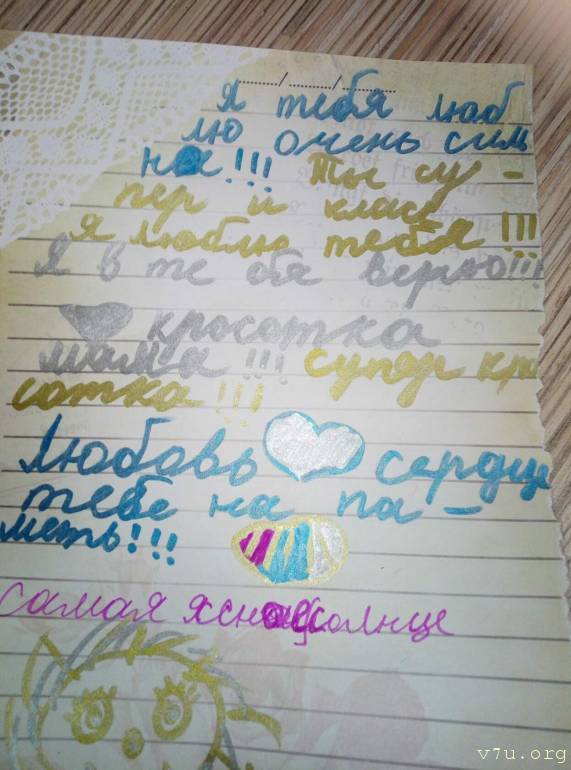 ....../....../......
Я тебя люб
лю очень сим
на!!! Ты су -
пер и класс
Я люблю тебя!!!
Я в те бя верю!!!
кросотка
мама!!! супер кра
сотка!!!
Любовь сердце
тебе на па -
меть!!!
самая ясная солнце
v7u.org